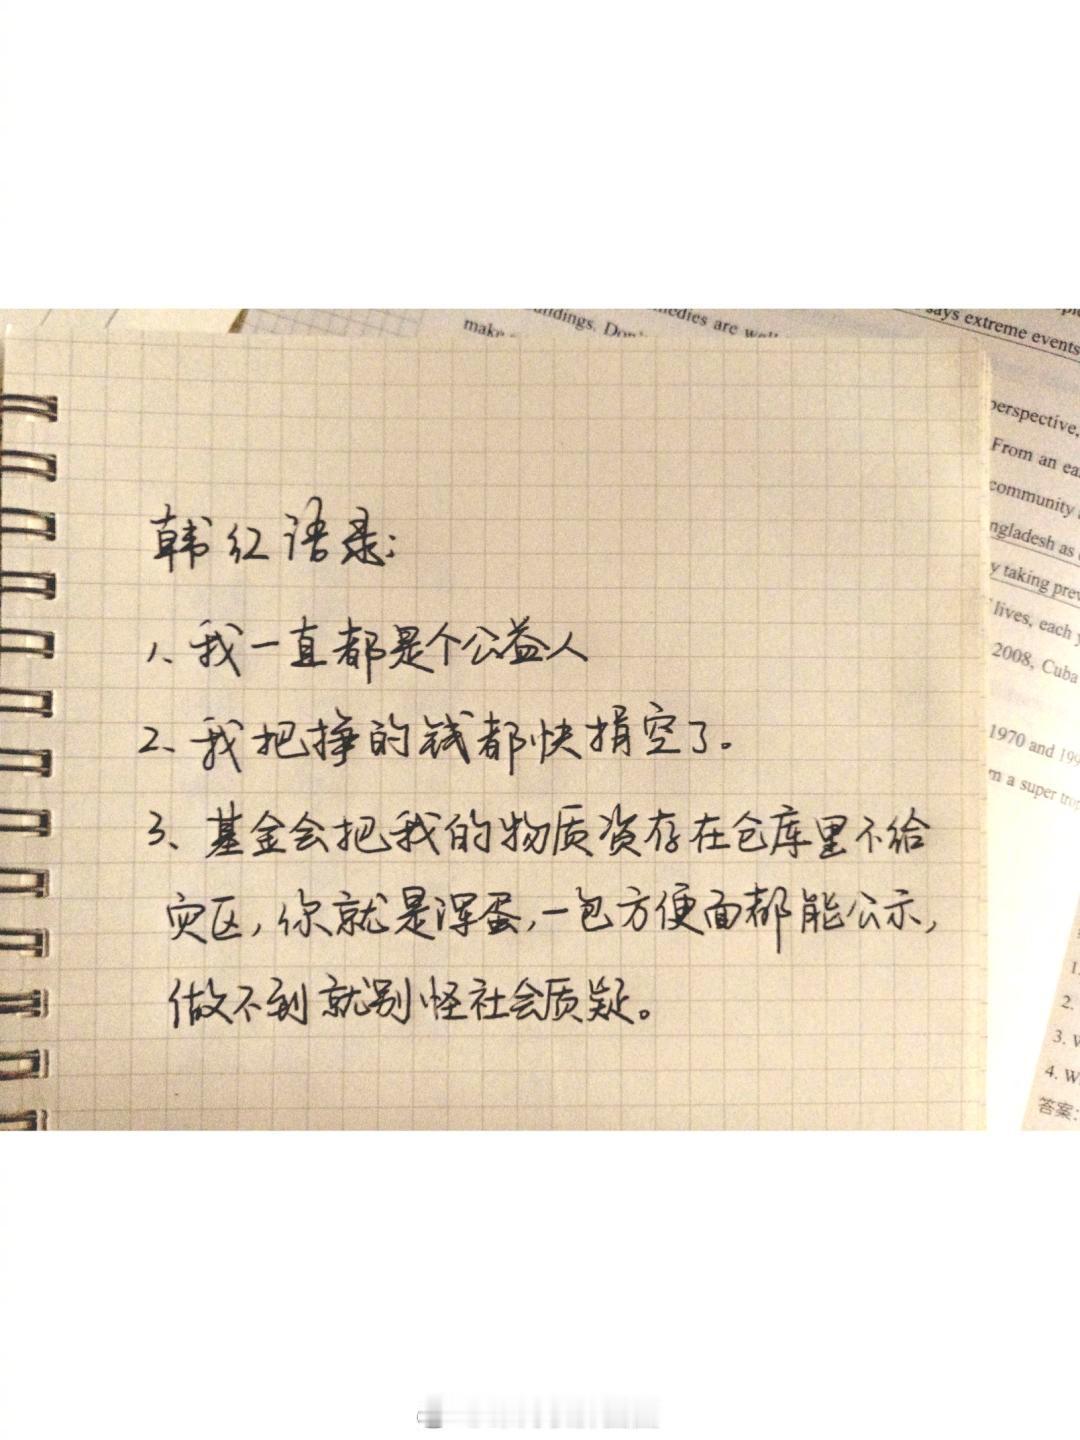 make
ndings. Don'
medies are well
says extreme events
perspective,
From an ea
community
ngladesh as
y taking prev
lives, each y
2008, Cuba
1970 and 199
m a super trop
韩红语录:
1、我一直都是个公益人
2、我把挣的钱都快捐空了。
3、基金会把我的物质资存在仓库里不给
灾区,你就是浑蛋,一包方便面都能公示,
做不到就别怪社会质疑。
1.
2.
3. W
4. W
答案: